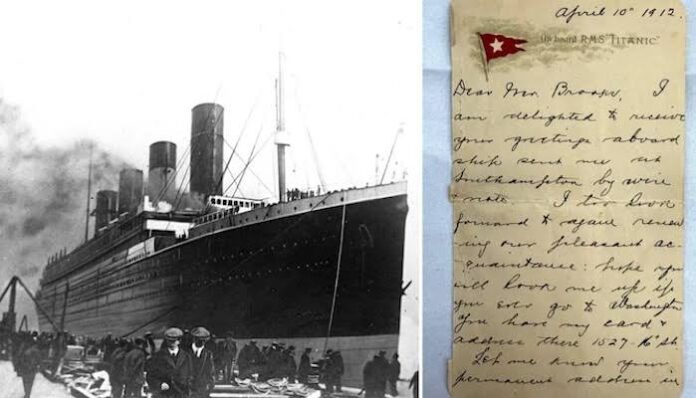 April 10th 1912.
On board R.M.S. "TITANIC"
Dear Mr. I
am delighted to receive
your greetings aboard
ship sent me at
Southampton by wire
& note. I too look
forward to again renew
ing our pleasant ac-
quaintance: hope you
will look me up if
you ever go to Washington
You have my card &
address there 1527-16" St.
Let me know your
permanent address in